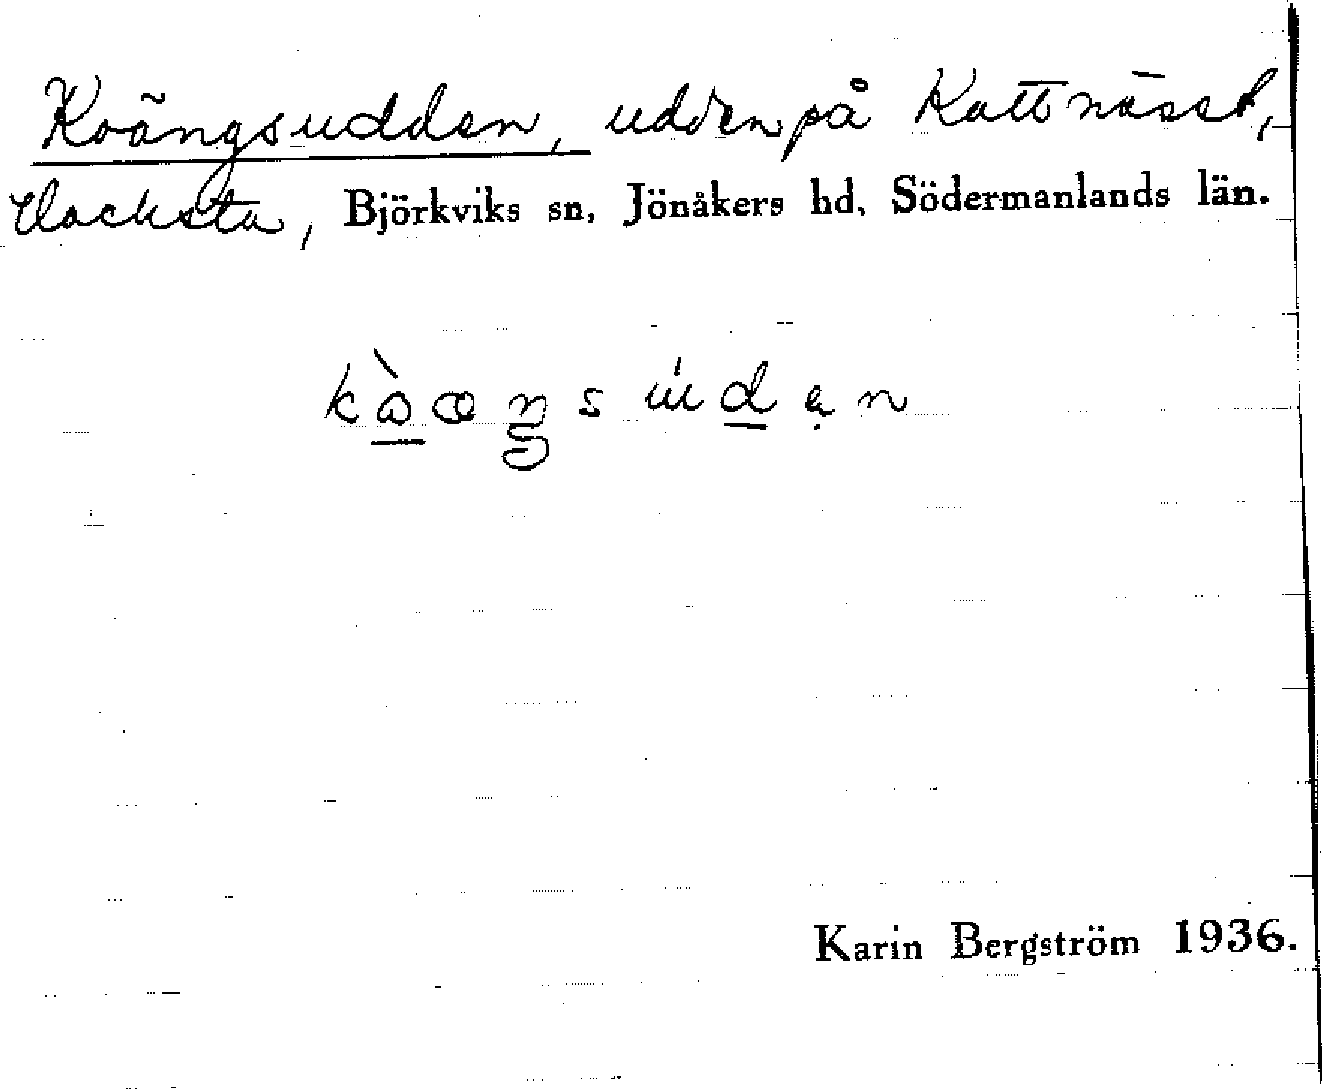 Koängsudden, udden på Kattnäset,
Vacksta, Björkviks sn, Jönåkers hd, Södermanlands län.
Karin Bergström 1936.